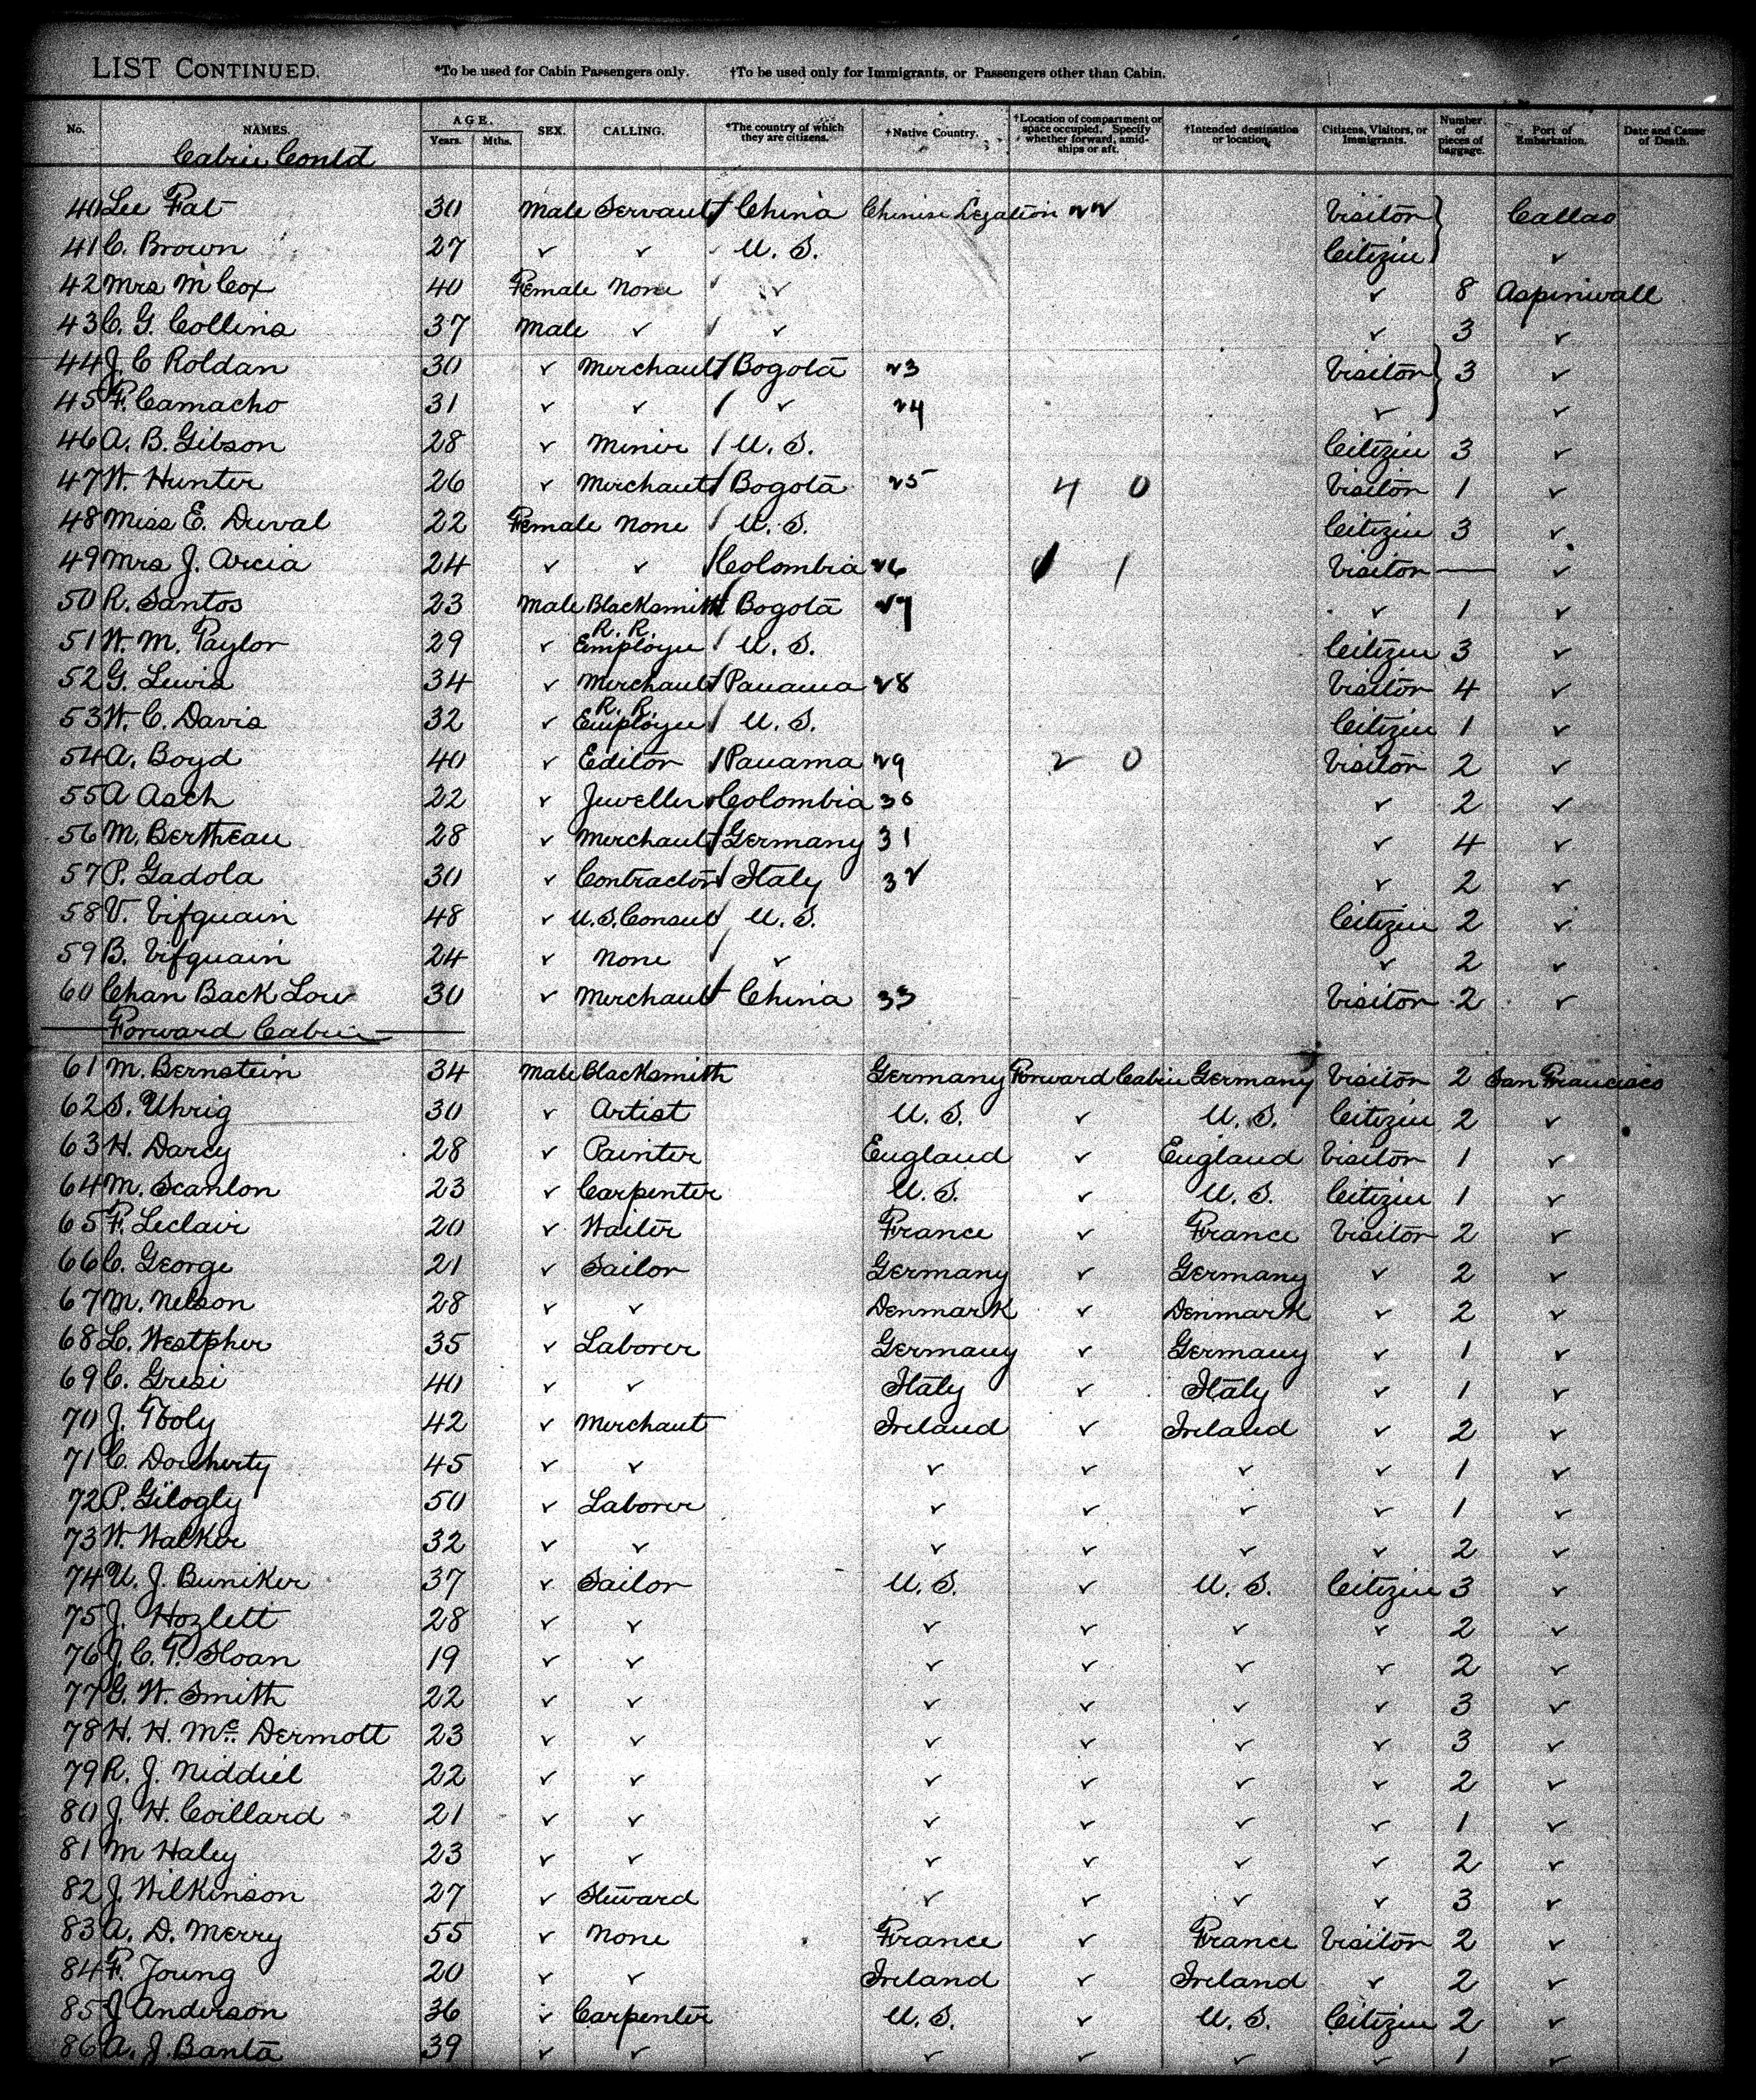 LIST CONTINUED. *To be used for Cabin Passengers only. †To be used only for Immigrants, or Passengers other than Cabin.
No. NAMES. AGE. Years. Mths. SEX. CALLING. *The country of which they are citizens. †Native Country. †Location of compartment or space occupied. Specify whether forward, amidships or aft. †Intended destination or location. Citizens, Visitors, or Immigrants. Number of pieces of baggage. Port of Embarkation. Date and Cause of Death.
Cabin Contd
40 Lee Fat 30 Male Servant / China Chinese Legation 22 Visitor } Callao
41 C. Brown 27 ✓ ✓ U. S. Citizen ✓
42 Mrs M Cox 40 Female None / ✓ ✓ 8 Aspinwall
43 C. G. Collins 37 Male ✓ / ✓ ✓ 3 ✓
44 J. C Roldan 30 ✓ Merchant / Bogotá 23 Visitor } 3 ✓
45 F. Camacho 31 ✓ ✓ / ✓ 24 ✓ ✓
46 A. B. Gibson 28 ✓ Miner / U. S. Citizen 3 ✓
47 W. Hunter 26 ✓ Merchant / Bogotá 25 4 0 Visitor 1 ✓
48 Miss E. Duval 22 Female None / U. S. Citizen 3 ✓
49 Mrs J. Arcia 24 ✓ ✓ / Colombia 26 1 1 Visitor — ✓
50 R. Santos 23 Male Blacksmith / Bogotá 27 ✓ 1 ✓
51 W. M. Taylor 29 ✓ R. R. Employee / U. S. Citizen 3 ✓
52 G. Lewis 34 ✓ Merchant / Panama 28 Visitor 4 ✓
53 W. C. Davis 32 ✓ R. R. Employee / U. S. Citizen 1 ✓
54 A. Boyd 40 ✓ Editor / Panama 29 2 0 Visitor 2 ✓
55 A Asch 22 ✓ Jeweller Colombia 30 ✓ 2 ✓
56 M. Bertheau 28 ✓ Merchant / Germany 31 ✓ 4 ✓
57 P. Gadola 30 ✓ Contractor / Italy 32 ✓ 2 ✓
58 V. Vifquain 48 ✓ U. S. Consul / U. S. Citizen 2 ✓
59 B. Vifquain 24 ✓ None / ✓ ✓ 2 ✓
60 Chan Back Low 30 ✓ Merchant / China 33 Visitor 2 ✓
Forward Cabin
61 M. Bernstein 34 Male Blacksmith Germany Forward Cabin Germany Visitor 2 San Francisco
62 S. Uhrig 30 ✓ Artist U. S. ✓ U. S. Citizen 2 ✓
63 H. Darcy 28 ✓ Painter England ✓ England Visitor 1 ✓
64 M. Scanlon 23 ✓ Carpenter U. S. ✓ U. S. Citizen 1 ✓
65 F. Leclair 20 ✓ Waiter France ✓ France Visitor 2 ✓
66 C. George 21 ✓ Sailor Germany ✓ Germany ✓ 2 ✓
67 M. Nelson 28 ✓ ✓ Denmark ✓ Denmark ✓ 2 ✓
68 L. Westpher 35 ✓ Laborer Germany ✓ Germany ✓ 1 ✓
69 C. Grisi 40 ✓ ✓ Italy ✓ Italy ✓ 1 ✓
70 J. Tooly 42 ✓ Merchant Ireland ✓ Ireland ✓ 2 ✓
71 C. Dougherty 45 ✓ ✓ ✓ ✓ ✓ ✓ 1 ✓
72 P. Gilogly 50 ✓ Laborer ✓ ✓ ✓ ✓ 1 ✓
73 W. Walker 32 ✓ ✓ ✓ ✓ ✓ ✓ 2 ✓
74 U. J. Buniker 37 ✓ Sailor U. S. ✓ U. S. Citizen 3 ✓
75 J. Hozlett 28 ✓ ✓ ✓ ✓ ✓ ✓ 2 ✓
76 J. C. T. Sloan 19 ✓ ✓ ✓ ✓ ✓ ✓ 2 ✓
77 G. W. Smith 22 ✓ ✓ ✓ ✓ ✓ ✓ 3 ✓
78 H. H. Mc Dermott 23 ✓ ✓ ✓ ✓ ✓ ✓ 3 ✓
79 R. J. Niddiel 22 ✓ ✓ ✓ ✓ ✓ ✓ 2 ✓
80 J. H. Coillard 21 ✓ ✓ ✓ ✓ ✓ ✓ 1 ✓
81 M Haley 23 ✓ ✓ ✓ ✓ ✓ ✓ 2 ✓
82 J. Wilkinson 27 ✓ Steward ✓ ✓ ✓ ✓ 3 ✓
83 A. D. Merry 55 ✓ None France ✓ France Visitor 2 ✓
84 F. Joung 20 ✓ ✓ Ireland ✓ Ireland ✓ 2 ✓
85 J Anderson 36 ✓ Carpenter U. S. ✓ U. S. Citizen 2 ✓
86 A. J. Banta 39 ✓ ✓ ✓ ✓ ✓ ✓ 1 ✓